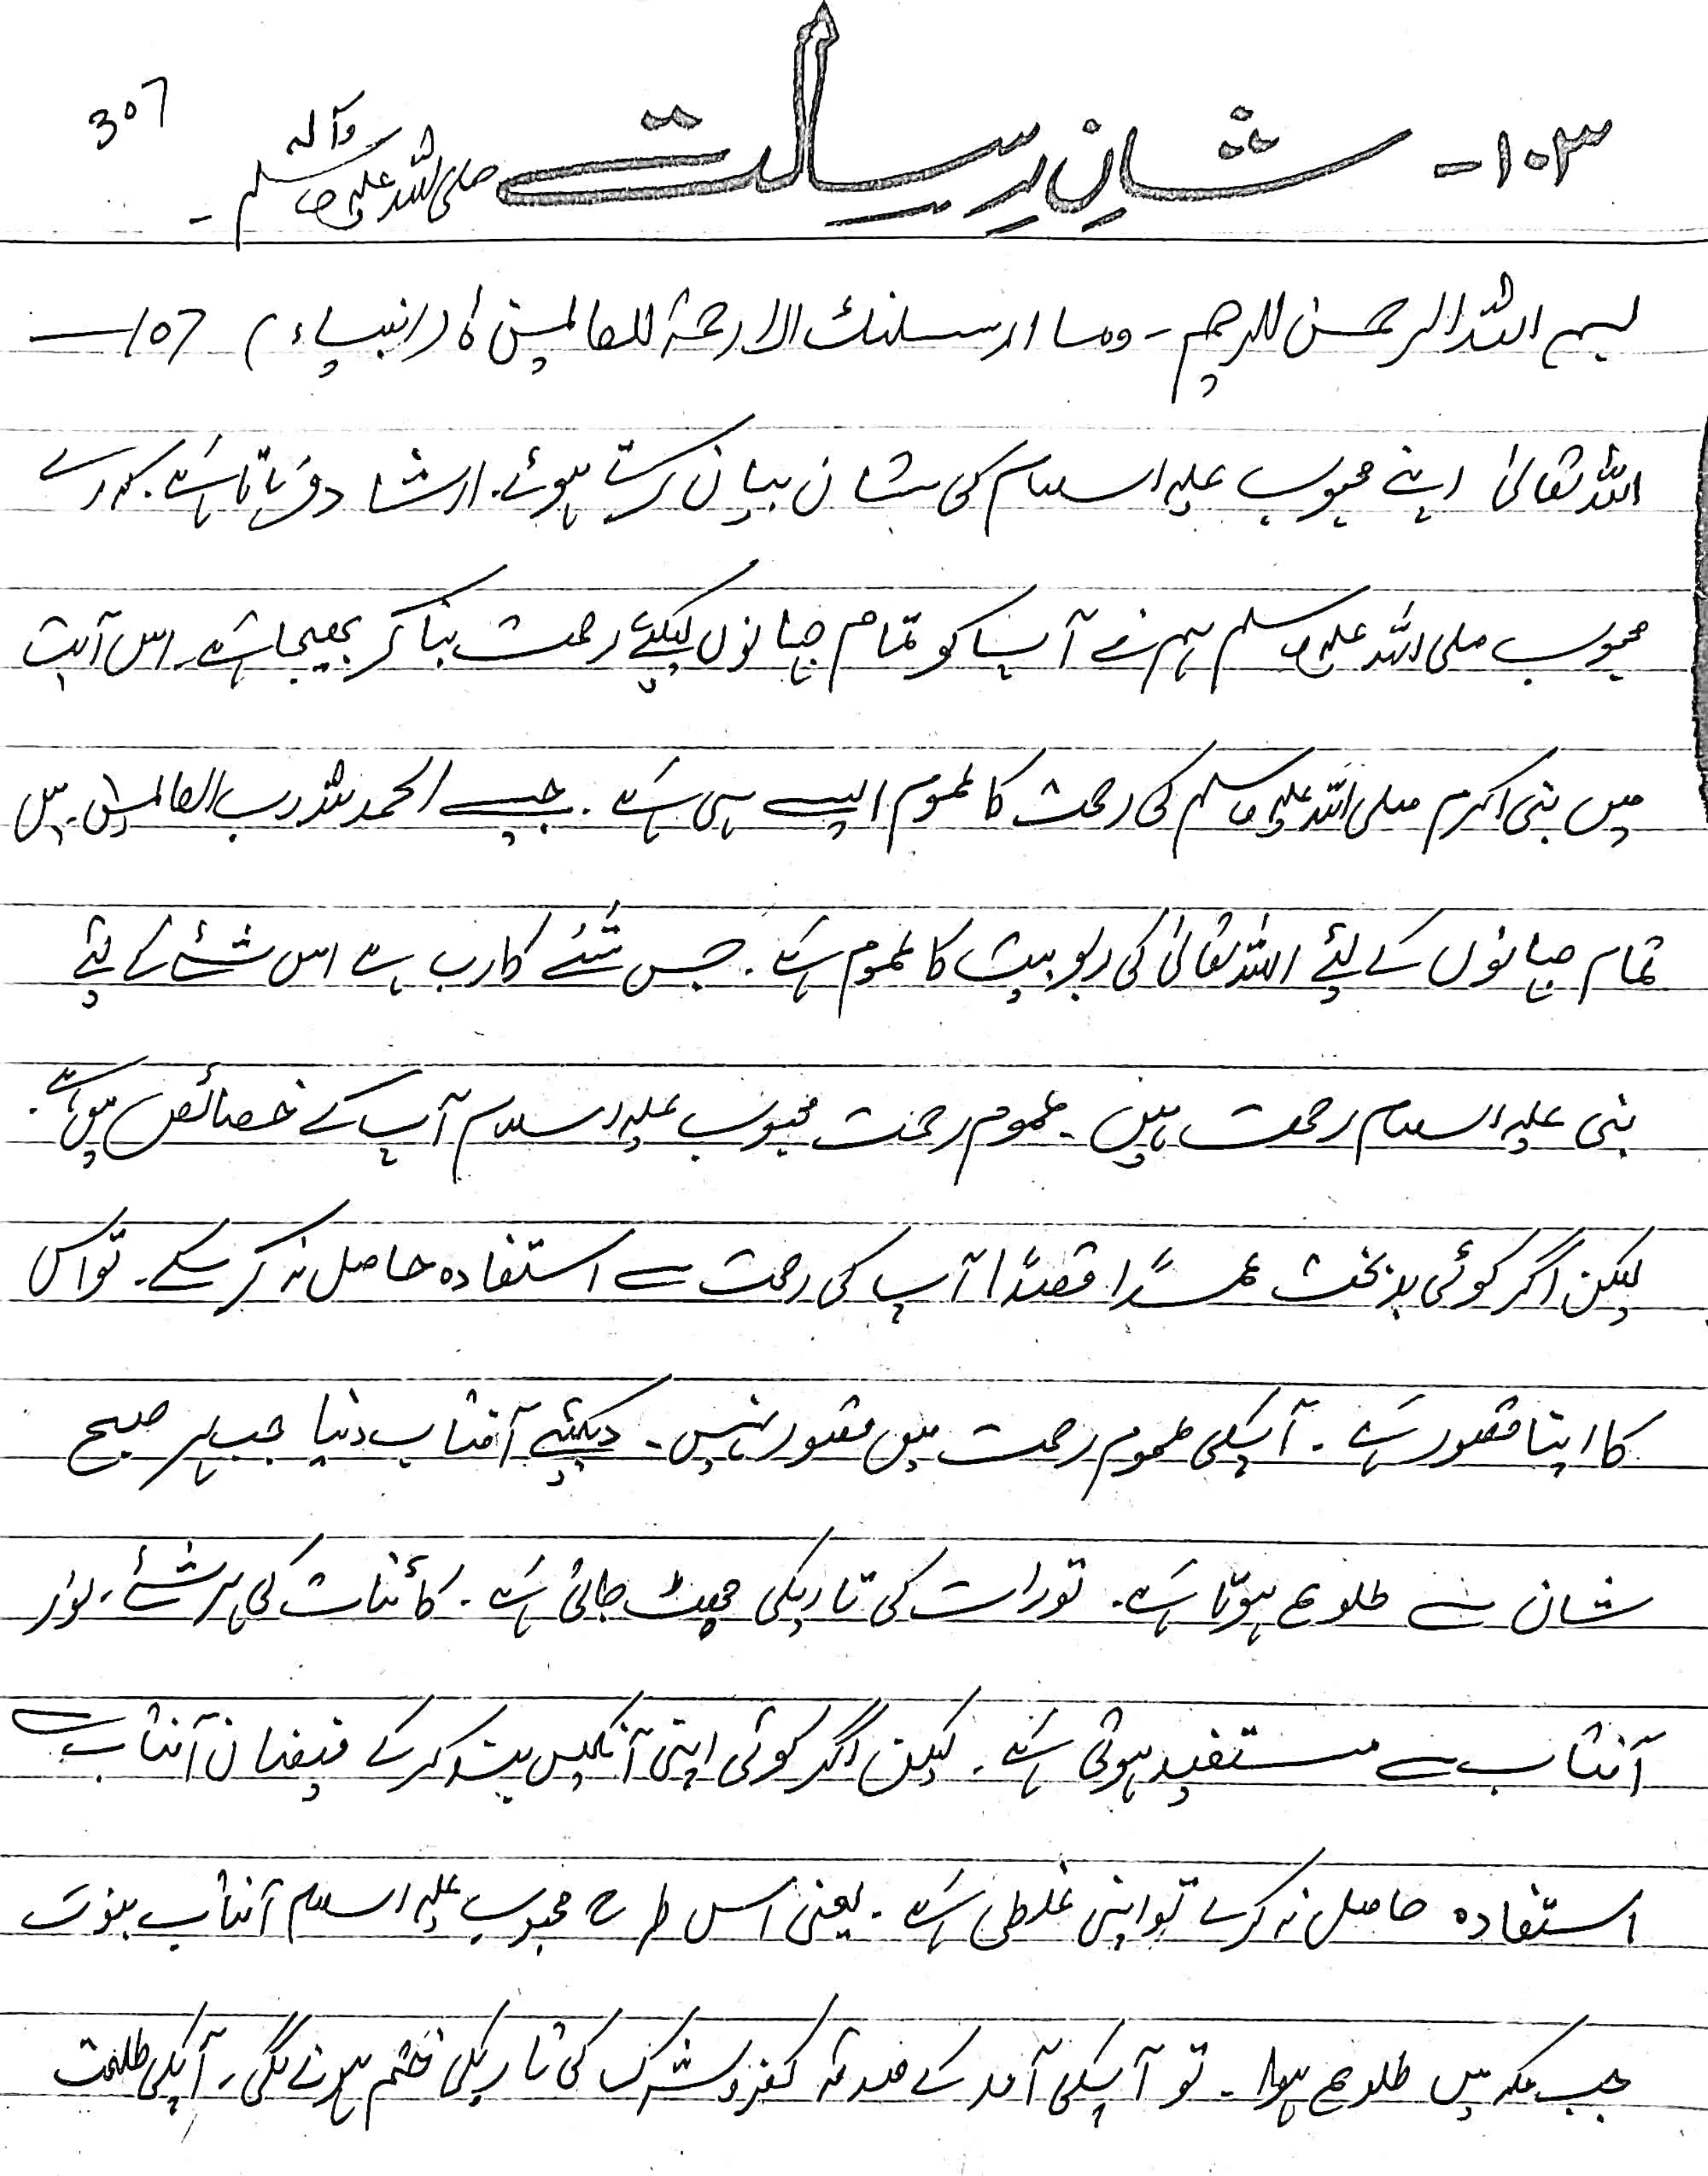 307
۱۰۳- شانِ رسالت صلی اللہ علیہ وآلہ وسلم -
بسم اللہ الرحمن الرحیم - وما ارسلنك الا رحمۃ للعالمین ٥ (انبیاء) 107 —
اللہ تعالیٰ اپنے محبوب علیہ السلام کی شان بیان کرتے ہوئے۔ ارشاد فرماتا ہے۔ کہ اے
محبوب صلی اللہ علیہ وسلم ہم نے آپ کو تمام جہانوں کیلئے رحمت بنا کر بھیجا ہے۔ اس آیت
میں نبی اکرم صلی اللہ علیہ وسلم کی رحمت کا عموم ایسے ہی ہے۔ جیسے الحمد للہ رب العالمین۔ میں
تمام جہانوں کے لیئے اللہ تعالیٰ کی ربوبیت کا عموم ہے۔ جس شئے کا رب ہے اس شئے کے لیئے
نبی علیہ السلام رحمت ہیں۔ عموم رحمت محبوب علیہ السلام آپ کے خصائص میں ہے۔
لیکن اگر کوئی بدبخت عمداً قصداً آپ کی رحمت سے استفادہ حاصل نہ کر سکے۔ تو اس
کا اپنا قصور ہے۔ آپکی عموم رحمت میں قصور نہیں۔ دیکھیئے آفتاب دنیا جب ہر صبح
شان سے طلوع ہوتا ہے۔ تو رات کی تاریکی چھٹ جاتی ہے۔ کائنات کی ہر شئے، نور
آفتاب سے مستفید ہوتی ہے۔ لیکن اگر کوئی اپنی آنکھیں بند کر کے فیضان آفتاب سے
استفادہ حاصل نہ کرے تو اپنی غلطی ہے۔ یعنی اس طرح محبوب علیہ السلام آفتاب نبوت
جب مکہ میں طلوع ہوا۔ تو آپکی آمد کے صدقہ کفر و شرک کی تاریکی ختم ہونے لگی۔ آپکی طلعت